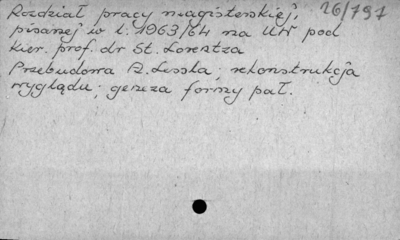 Rozdział pracy magisterskiej, 26/797
pisanej w l. 1963/64 na UW pod
kier. prof. dr St. Lorentza
Przebudowa P. Lessla; rekonstrukcja
wyglądu; geneza formy pał.